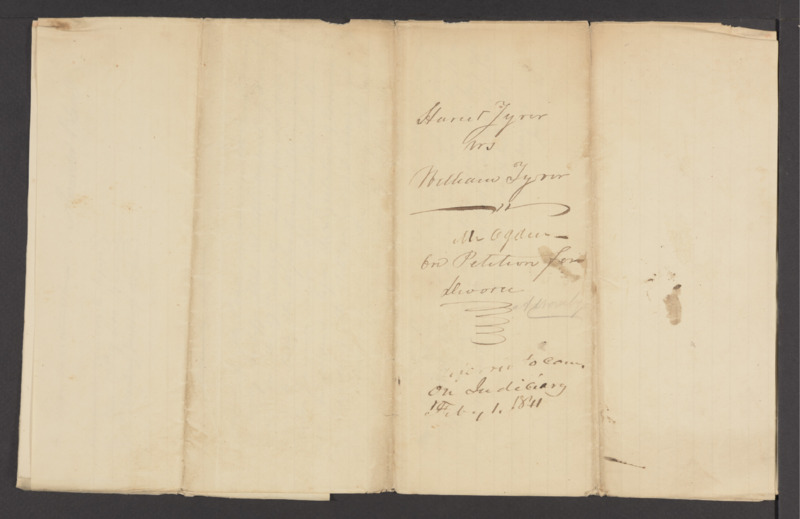 Hariet Tyrer
vrs
William Tyrer
Mr Ogden
On Petition for
Divorce
to Com.
On Judiciary
Feby 1. 1841